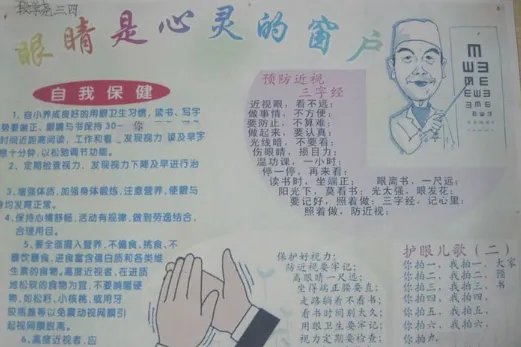 三四
眼睛是心灵的窗户
自我保健
1、自小养成良好的用眼卫生习惯，读书、写字
势要端正、眼睛与书保持30-
你
时间近距离阅读，工作和看
发现视力
误及早亨
息十分钟，以松弛调节功能。
2、定期检查视力，发现视力下降及早进行治
3、增强体质，加强身体锻炼，注意营养，使眼与
身均发育正常。
4、保持心情舒畅，活动有规律，做到劳逸结合，
合理用目。
5、要全面摄入营养，不偏食、挑食、不
暴饮暴食，进食富含蛋白质和各类维
生素的食物。高度近视者，在进质
地较硬的食物为宜，不要啃咀硬
物，如松籽、小核桃，或用牙
咬瓶盖等以免震动视网膜引
起视网膜脱离。
6、高度近视者，应
预防近视
三字经
近视眼，看不远；
做事情，不方便；
要防止，不算难；
做起来，要认真；
光线暗，不要看；
伤眼睛，损目力；
温功课，一小时；
停一停，再来看；
读书时，坐端正； 眼离书，一尺远；
阳光下，莫看书； 光太强，眼发花；
要记好，照着做； 三字经，记心里；
照着做，防近视；
保护好视力；
防近视要牢记；
离眼睛一尺远；
坐得端正腰要直；
走路躺着不看书；
看书时间别太久；
用眼卫生要牢记；
视力定期要检查；
护眼儿歌（二）
你拍一，我拍一，大家
你拍二，我拍二，预
你拍三，我拍三，书
你拍四，我拍四，
你拍五，我拍五，
你拍六，我拍六，
你拍九